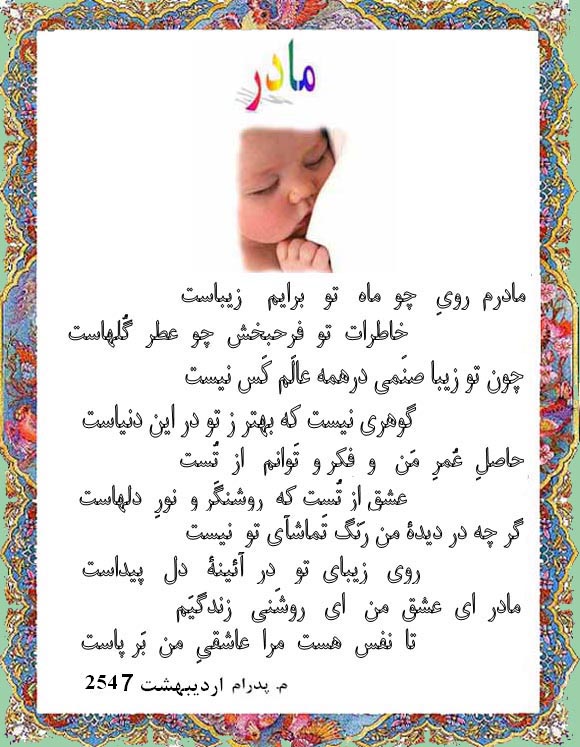 مادر
مادرم رویِ چو ماه تو برایم زیباست
خاطرات تو فرحبخش چو عطر گُلهاست
چون تو زیبا صنَمی درهمه عالَم کَس نیست
گوهری نیست که بهتر ز تو در این دنیاست
حاصلِ عُمرِ مَن و فکر و تَوانم از تُست
عشق از تُست که روشنگَر و نورِ دلهاست
گر چه در دیدهٔ من رَنگ تَماشآی تو نیست
روی زیبای تو در آئینهٔ دل پیداست
مادر ای عشق من ای روشَنی زندگیَم
تا نفس هست مرا عاشقیِ من بَر پاست
م. پدرام اردیبهشت 2547